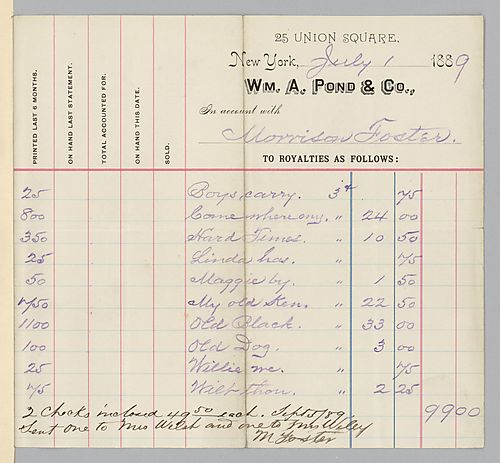 25 UNION SQUARE.
New York, July 1 1889
WM. A. POND & CO.,
In account with
Morrison Foster.
TO ROYALTIES AS FOLLOWS:
PRINTED LAST 6 MONTHS.
ON HAND LAST STATEMENT.
TOTAL ACCOUNTED FOR.
ON HAND THIS DATE.
SOLD.
25 Boys carry. 3¢ 75
800 Come where my. " 24 00
350 Hard Times. " 10 50
25 Linda has. " 75
50 Maggie by. " 1 50
750 My old Ken. " 22 50
1100 Old Black. " 33 00
100 Old Dog. " 3 00
25 Willie we. " 75
75 Wilt thou. " 2 25
2 Checks inclosed 49 50 each. Sept 5/89. 99 00
Sent one to Mrs Welsh and one to Mrs Wiley
M Foster